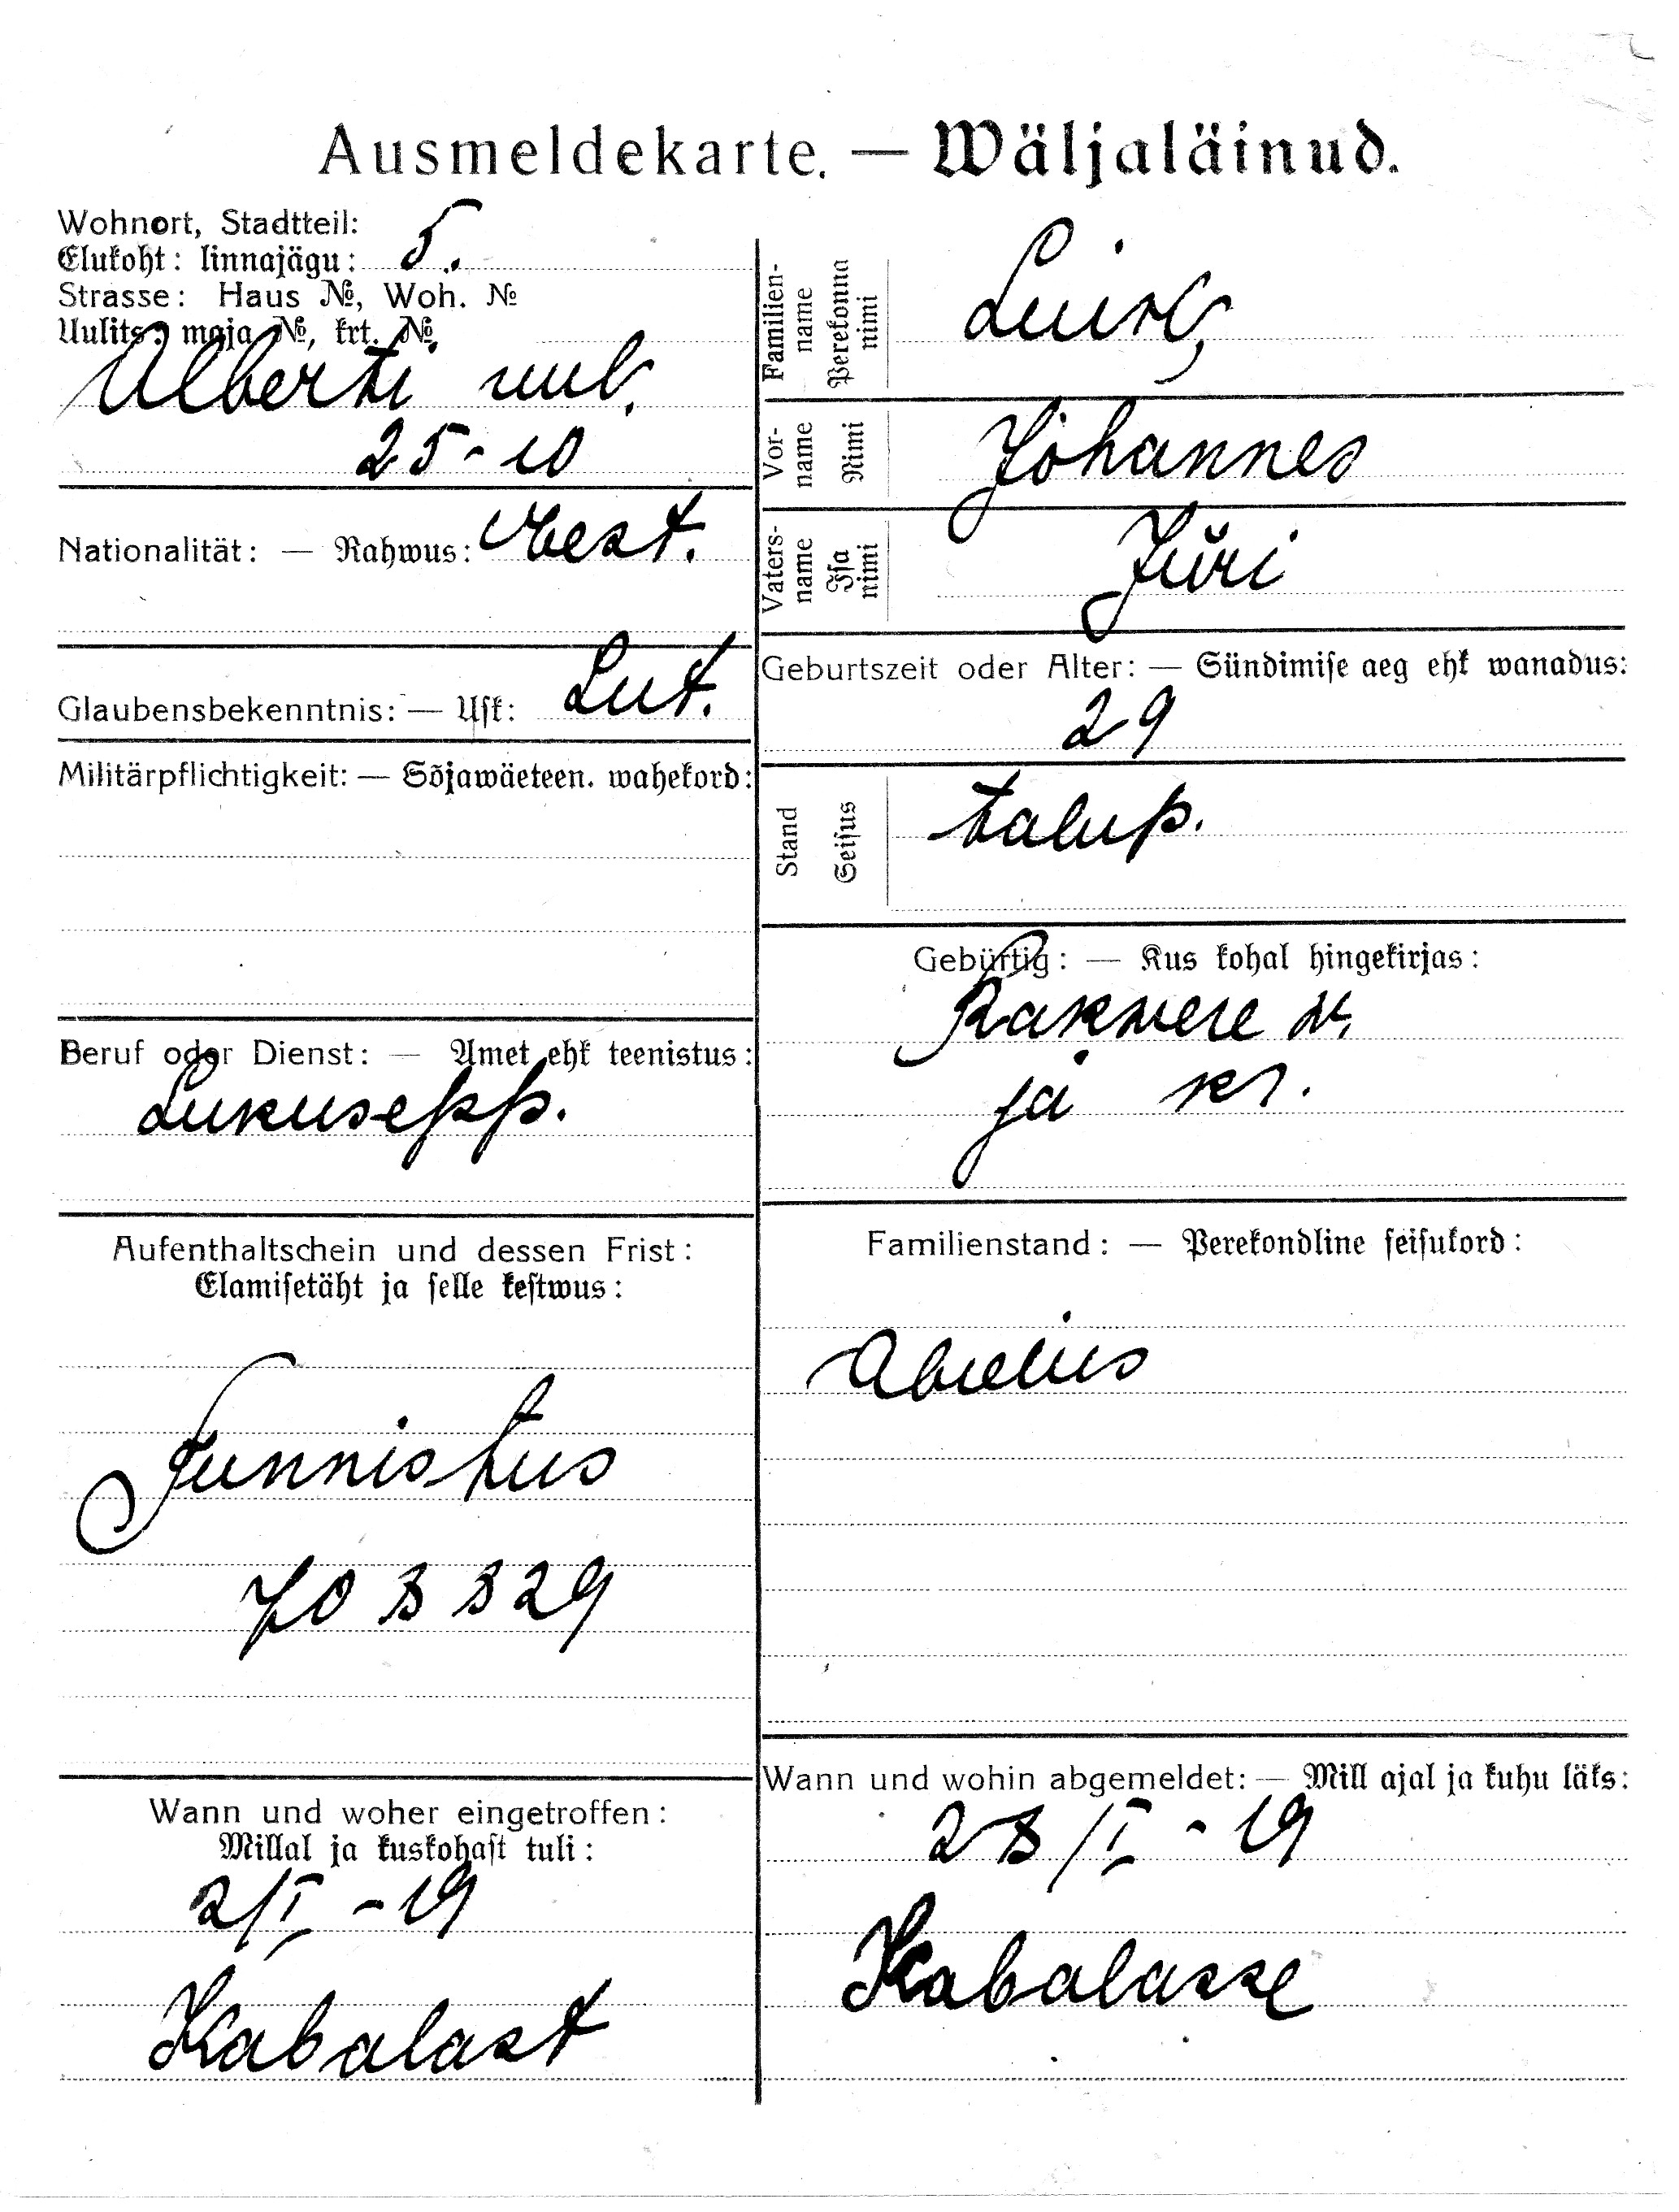 Ausmeldekarte. — Wäljaläinud.
Wohnort, Stadtteil:
Elukoht: linnajägu: 5.
Strasse: Haus №, Woh. №
Uulits: maja №, krt. №
Alberti uul.
25-10
Nationalität: — Rahwus: eest.
Glaubensbekenntnis: — Usk: Lut.
Militärpflichtigkeit: — Sõjawäeteen. wahekord:
Beruf oder Dienst: — Amet ehk teenistus:
Lukusepp.
Aufenthaltschein und dessen Frist:
Elamisetäht ja selle kestwus:
Tunnistus
Wann und woher eingetroffen:
Millal ja kuskohast tuli:
2/I - 19
Kabalast
Familien-
name
Perekonna
nimi
Luik,
Vor-
name
Nimi
Johannes
Vaters-
name
Isa
nimi
Jüri
Geburtszeit oder Alter: — Sündimise aeg ehk wanadus:
29
Stand
Seisus
talup.
Gebürtig: — Kus kohal hingekirjas:
Rakwere w.
ja kr.
Familienstand: — Perekondline seisukord:
Abielus
Wann und wohin abgemeldet: — Mill ajal ja kuhu läks:
28/I - 19
Kabalasse